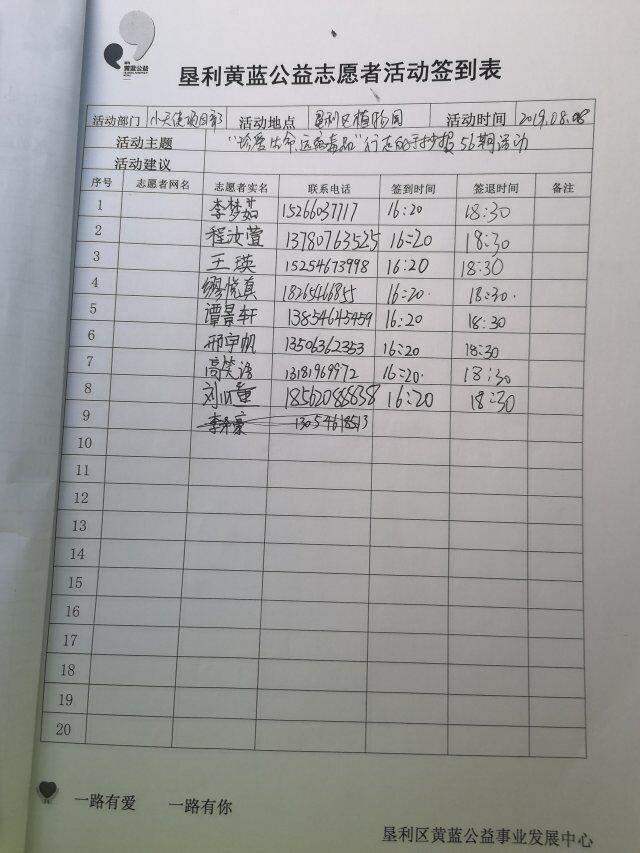 黄蓝公益
垦利黄蓝公益志愿者活动签到表
活动部门 小天使项目部 活动地点 垦利区植物园 活动时间 2019.08.08
活动主题 "珍爱生命,远离毒品"行走的手抄报56期活动
活动建议
序号 志愿者网名 志愿者实名 联系电话 签到时间 签退时间 备注
1 李梦茹 15266037717 16:20 18:30
2 程汝萱 13780763525 16:20 18:30
3 王瑛 15254673998 16:20 18:30
4 缪悦真 18265466855 16:20. 18:30.
5 谭景轩 13854645459 16:20 18:30
6 邢宇帆 13506362353 16:20 18:30
7 高笑语 13181969972 16:20. 18:30
8 18562088838 16:20 18:30
9
10
11
12
13
14
15
16
17
18
19
20
一路有爱 一路有你
垦利区黄蓝公益事业发展中心